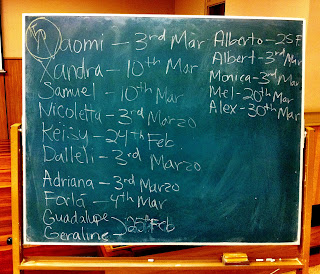 Naomi - 3rd Mar
Xandra - 10th Mar
Samuel - 10th Mar
Nicoletta - 3rd Marzo
Keisy - 24th Feb
Dalleli - 3rd Marzo
Adriana - 3rd Marzo
Farla - 4th Mar
Guadalupe
Geraline 25th Feb
Alberto - 25 F
Albert - 3rd Mar
Monica - 3rd Mar
Mel - 20th Mar
Alex - 30th Mar